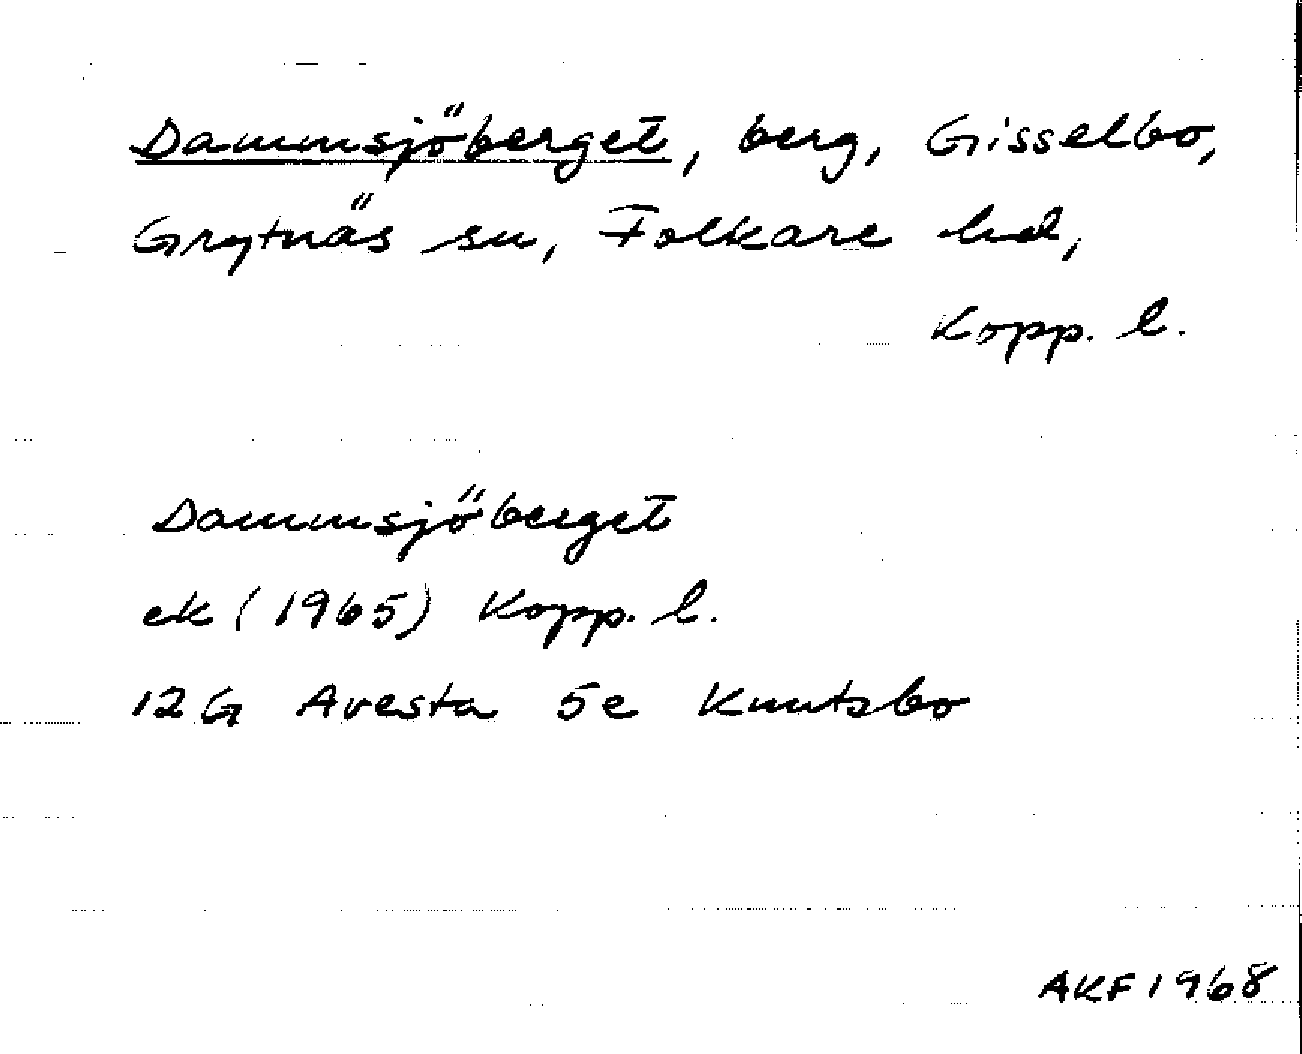 Dammsjöberget, berg, Gisselbo,
Grytnäs sn, Folkare hd,
Kopp. l.
Dammsjöberget
ek (1965) Kopp. l.
12G Avesta 5e Knutsbo
AKF 1968